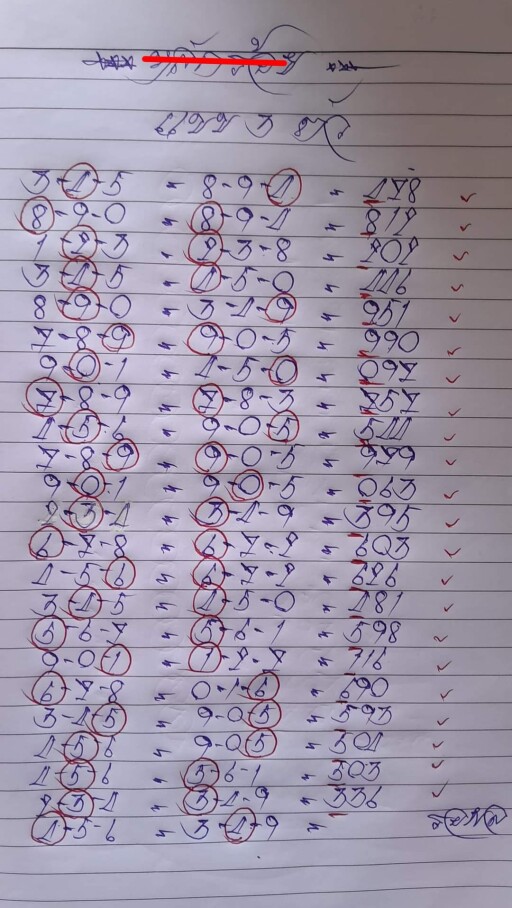 3-4-5 = 8-9-4 = 478
8-9-0 = 8-9-4 = 812
1-2-3 = 2-3-8 = 202
3-4-5 = 4-5-0 = 446
8-9-0 = 3-4-9 = 951
7-8-9 = 9-0-5 = 990
9-0-1 = 4-5-0 = 097
7-8-9 = 7-8-3 = 757
4-5-6 = 9-0-5 = 544
7-8-9 = 9-0-5 = 979
9-0-1 = 9-0-5 = 063
2-3-4 = 3-4-9 = 395
6-7-8 = 6-7-2 = 603
4-5-6 = 6-7-2 = 626
3-4-5 = 4-5-0 = 481
5-6-7 = 5-6-1 = 598
9-0-1 = 1-2-7 = 116
6-7-8 = 0-1-6 = 690
3-4-5 = 9-0-5 = 593
4-5-6 = 9-0-5 = 304
4-5-6 = 5-6-1 = 503
2-3-4 = 3-4-9 = 336
4-5-6 = 3-4-9 =